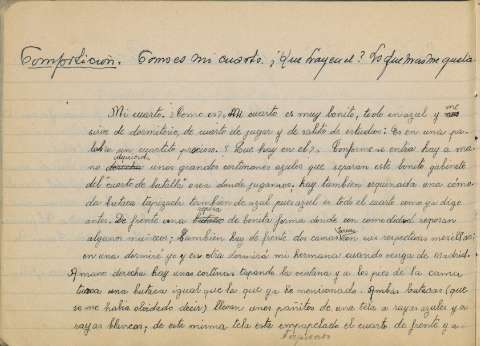 Composición. Como es mi cuarto. ¿Que hay en el? Lo que mas me gusta.
Mi cuarto. ¿Como es? Mi cuarto es muy bonito, todo en azul y me
sirve de dormitorio, de cuarto de jugar y de salita de estudios: Es en una pa-
labra un cuartito precioso. ¿Que hay en el? Conforme se entra hay a ma-
no derecha izquierda unos grandes cortinones azules que separan este bonito gabinete
del cuarto de batalla o sea donde jugamos, hay tambien esquinada una cómo-
da butaca tapizada tambien de azul pues azul es todo el cuarto como ya dije
antes. De frente una butaca de bonita forma donde con comodidad reposan
algunos muñecos; tambien hay de frente dos camas con sus respectivas mesillas;
en una dormiré yo y en otra dormirá mi hermana cuando venga de Madrid.
A mano derecha hay unas cortinas tapando la ventana y a los pies de la cama
una butaca igual que la que ya he mencionado. Ambas butacas (que
se me habia olvidado decir) llevan unos pañitos de una tela a rayas azules y a
rayas blancas; de esta misma tela está empapelado el cuarto de frente y a